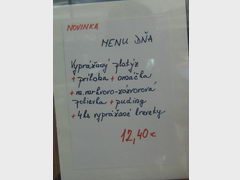 NOVINKA
MENU DŇA
Vyprážaný platýz
+ príloha + omáčka
+ m. mrkvovo-zázvorová
polievka + puding
+ 4 ks vyprážané krevety
12,40€